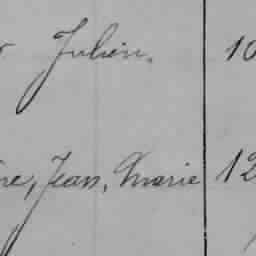 Julien. 10
re, Jean, Marie 12